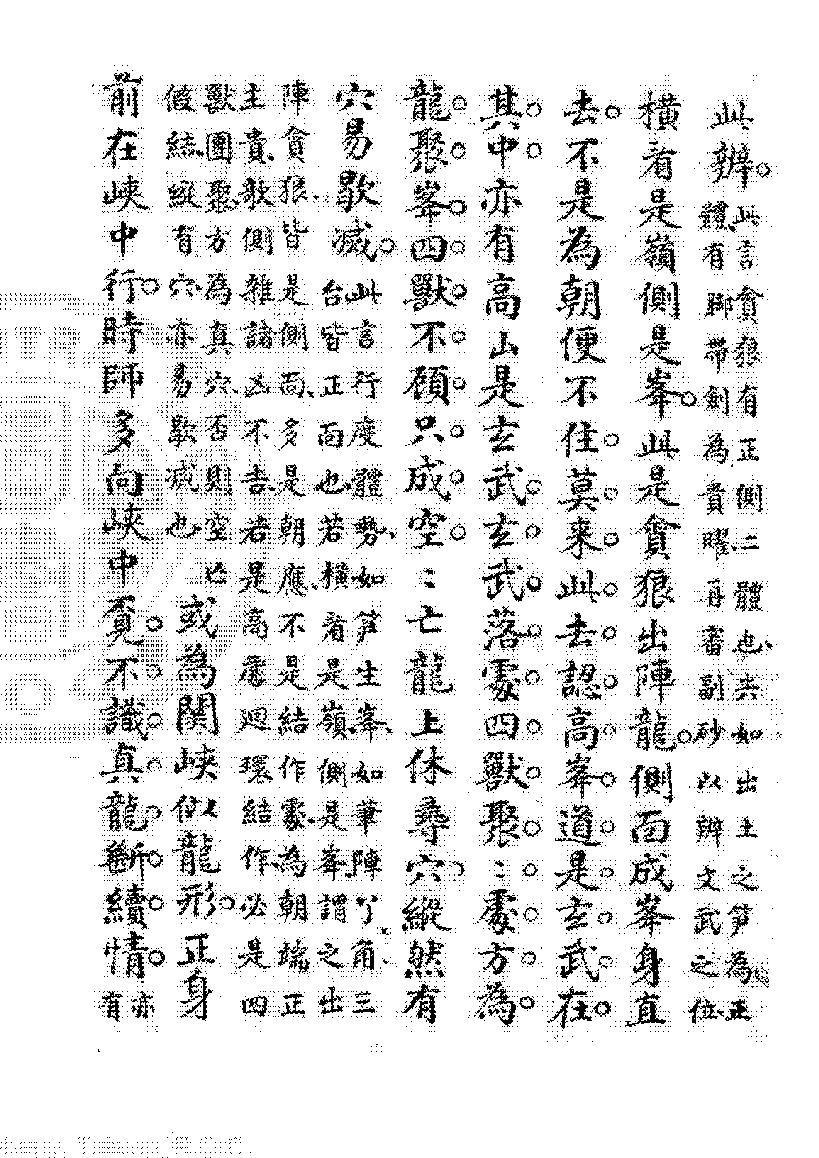 此辨
此言貪狼有正側二體也夫如出土之笋為正
體有脚帶劍為貴曜再審副砂以辨文武之位
橫看是嶺側是峯此是貪狼出陣龍側面成峯身直
去不是為朝便不住莫來此去認高峯道是玄武在
其中亦有高山是玄武玄武落處四獸聚〻處方為
龍聚峯四獸不顧只成空〻亡龍上休尋穴縱然有
穴易歇滅
此言行度體勢如笋生峯如筆陣丫角三
台皆正面也若橫看是嶺側是峯謂之出
陣貪狼皆是側面多是朝應不是結作處為朝端正
主貴欹側雜諸凶不吉若是高處廻環結作必是四
獸團聚方為真穴否則空亡
假結縱有穴亦易歇滅也
或為關峽似龍形正身
前在峽中行時師多向峽中覓不識真龍斷續情
亦
有